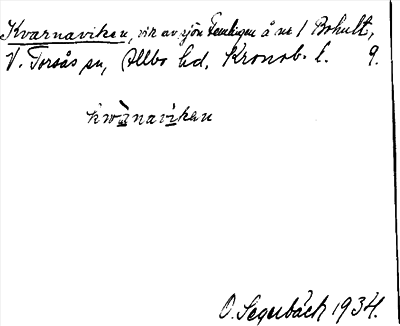 Kvarnaviken, vik av sjön Femlingen å nr 1 Bohult,
V. Torsås sn, Allbo hd, Kronob. l. 9.
kwànavikan
O. Segerbäck 1934.